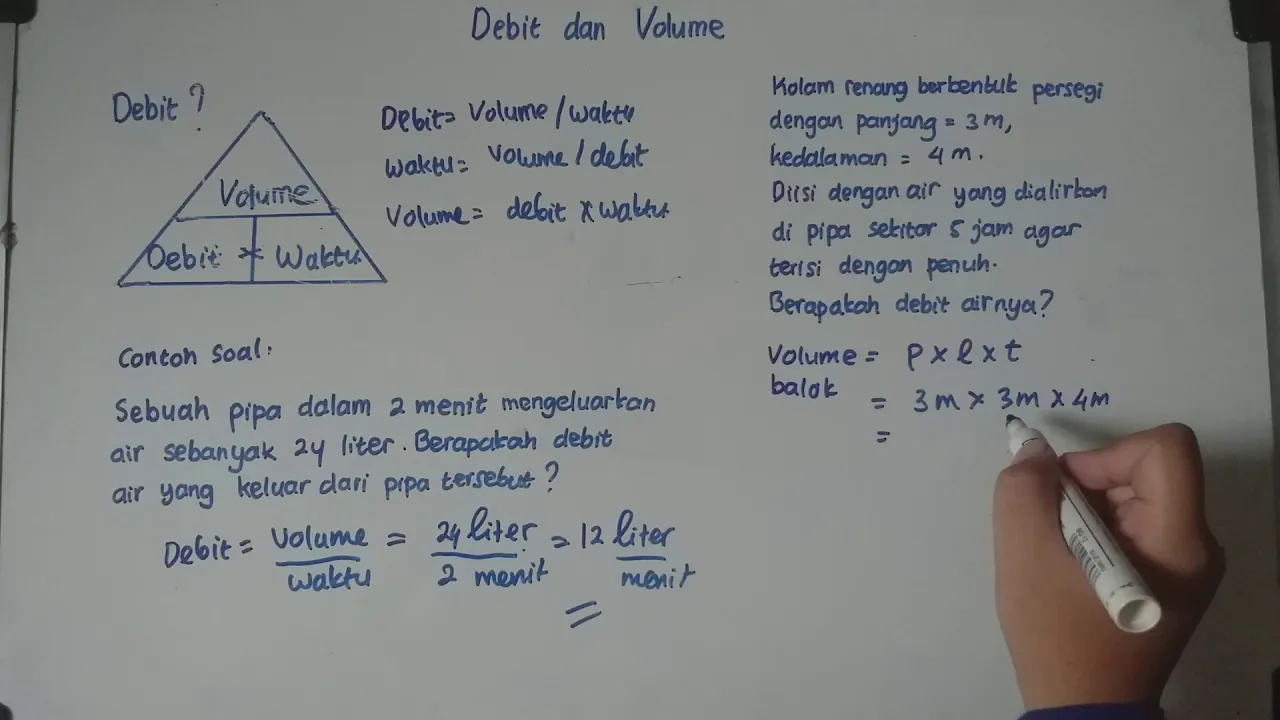 Debit dan Volume
Debit?
Volume
Debit × Waktu
Debit= Volume/waktu
waktu= volume/debit
Volume= debit x waktu
Contoh soal:
Sebuah pipa dalam 2 menit mengeluarkan
air sebanyak 24 liter. Berapakah debit
air yang keluar dari pipa tersebut?
Debit = Volume = 24 liter = 12 liter
waktu 2 menit menit
Kolam renang berbentuk persegi
dengan panjang = 3m,
kedalaman = 4m.
Diisi dengan air yang dialirkan
di pipa sekitar 5 jam agar
terisi dengan penuh.
Berapakah debit airnya?
Volume = p x l x t
balok
= 3m x 3m x 4m
=